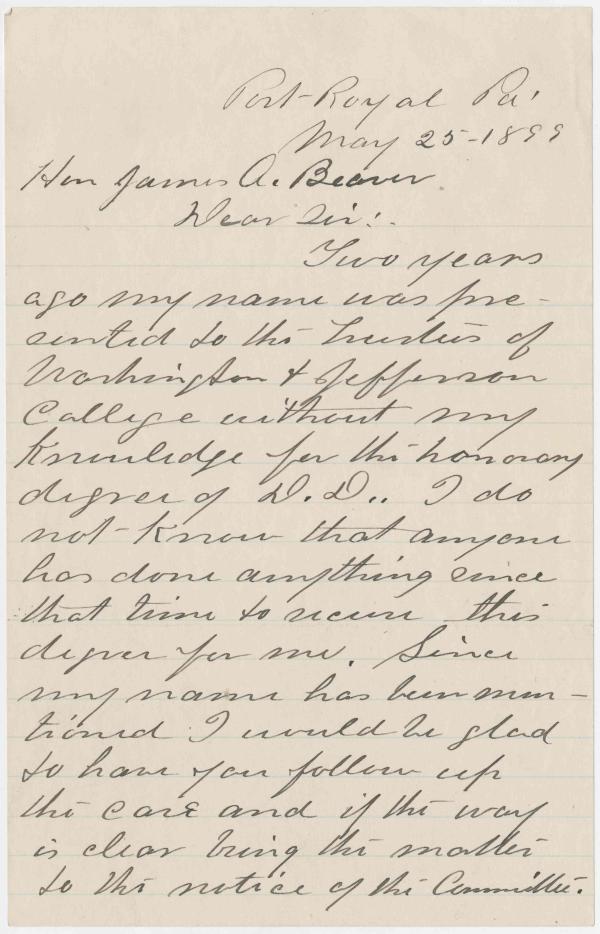 Port-Royal Pa'
May 25-1899
Hon James A. Beaver
Dear Sir:-
Two years
ago my name was pre-
sented to the Trustees of
Washington & Jefferson
College without my
Knowledge for the honorary
degree of D.D.. I do
not Know that anyone
has done anything since
that time to secure this
degree for me. Since
my name has been men-
tioned I would be glad
to have you follow up
the case and if the way
is clear bring the matter
to the notice of the Committee.